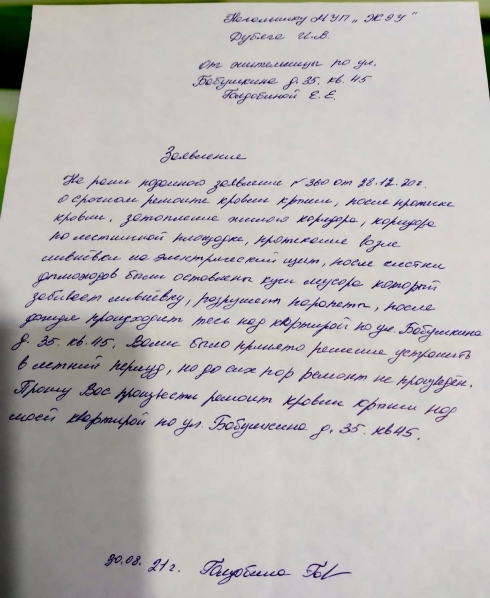 Начальнику МУП „ЖЭУ"
Дубяга И.В.
От жительницы по ул.
Бабушкина д. 35. кв. 45
Голдобиной Е. Е.
Заявление
На ранн поданого заявление № 360 от 28.12.20г.
о срочном ремонте кровли крыши, после протечке
кровли, затопление жилого коридора, коридора
по лестничной площадке, протекание возле
ливнёвки на электрический щит, после чистки
дымоходов были оставлены кучи мусора который
забивает ливнёвку, разрушены парапеты, после
дождя происходит течь над квартирой по ул. Бабушкина
д. 35. кв. 45. Вами было принято решение устранить
в летний период, но до сих пор ремонт не произведён.
Прошу Вас произвести ремонт кровли крыши над
моей квартирой по ул. Бабушкина д. 35. кв 45.
30.08. 21г. Голдобина